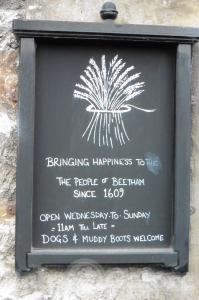 BRINGING HAPPINESS TO THE
THE PEOPLE OF BEETHAM
SINCE 1609
OPEN WEDNESDAY-TO-SUNDAY
- 11AM TILL LATE -
DOGS & MUDDY BOOTS WELCOME